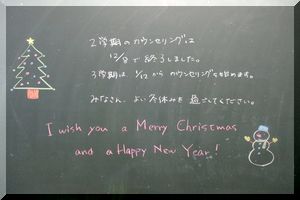 2学期のカウンセリングは
12/8で終了しました。
3学期は 1/12 からカウンセリングを始めます。
みなさん、よい冬休みを過ごしてください。
I wish you a Merry Christmas
and a Happy New Year!